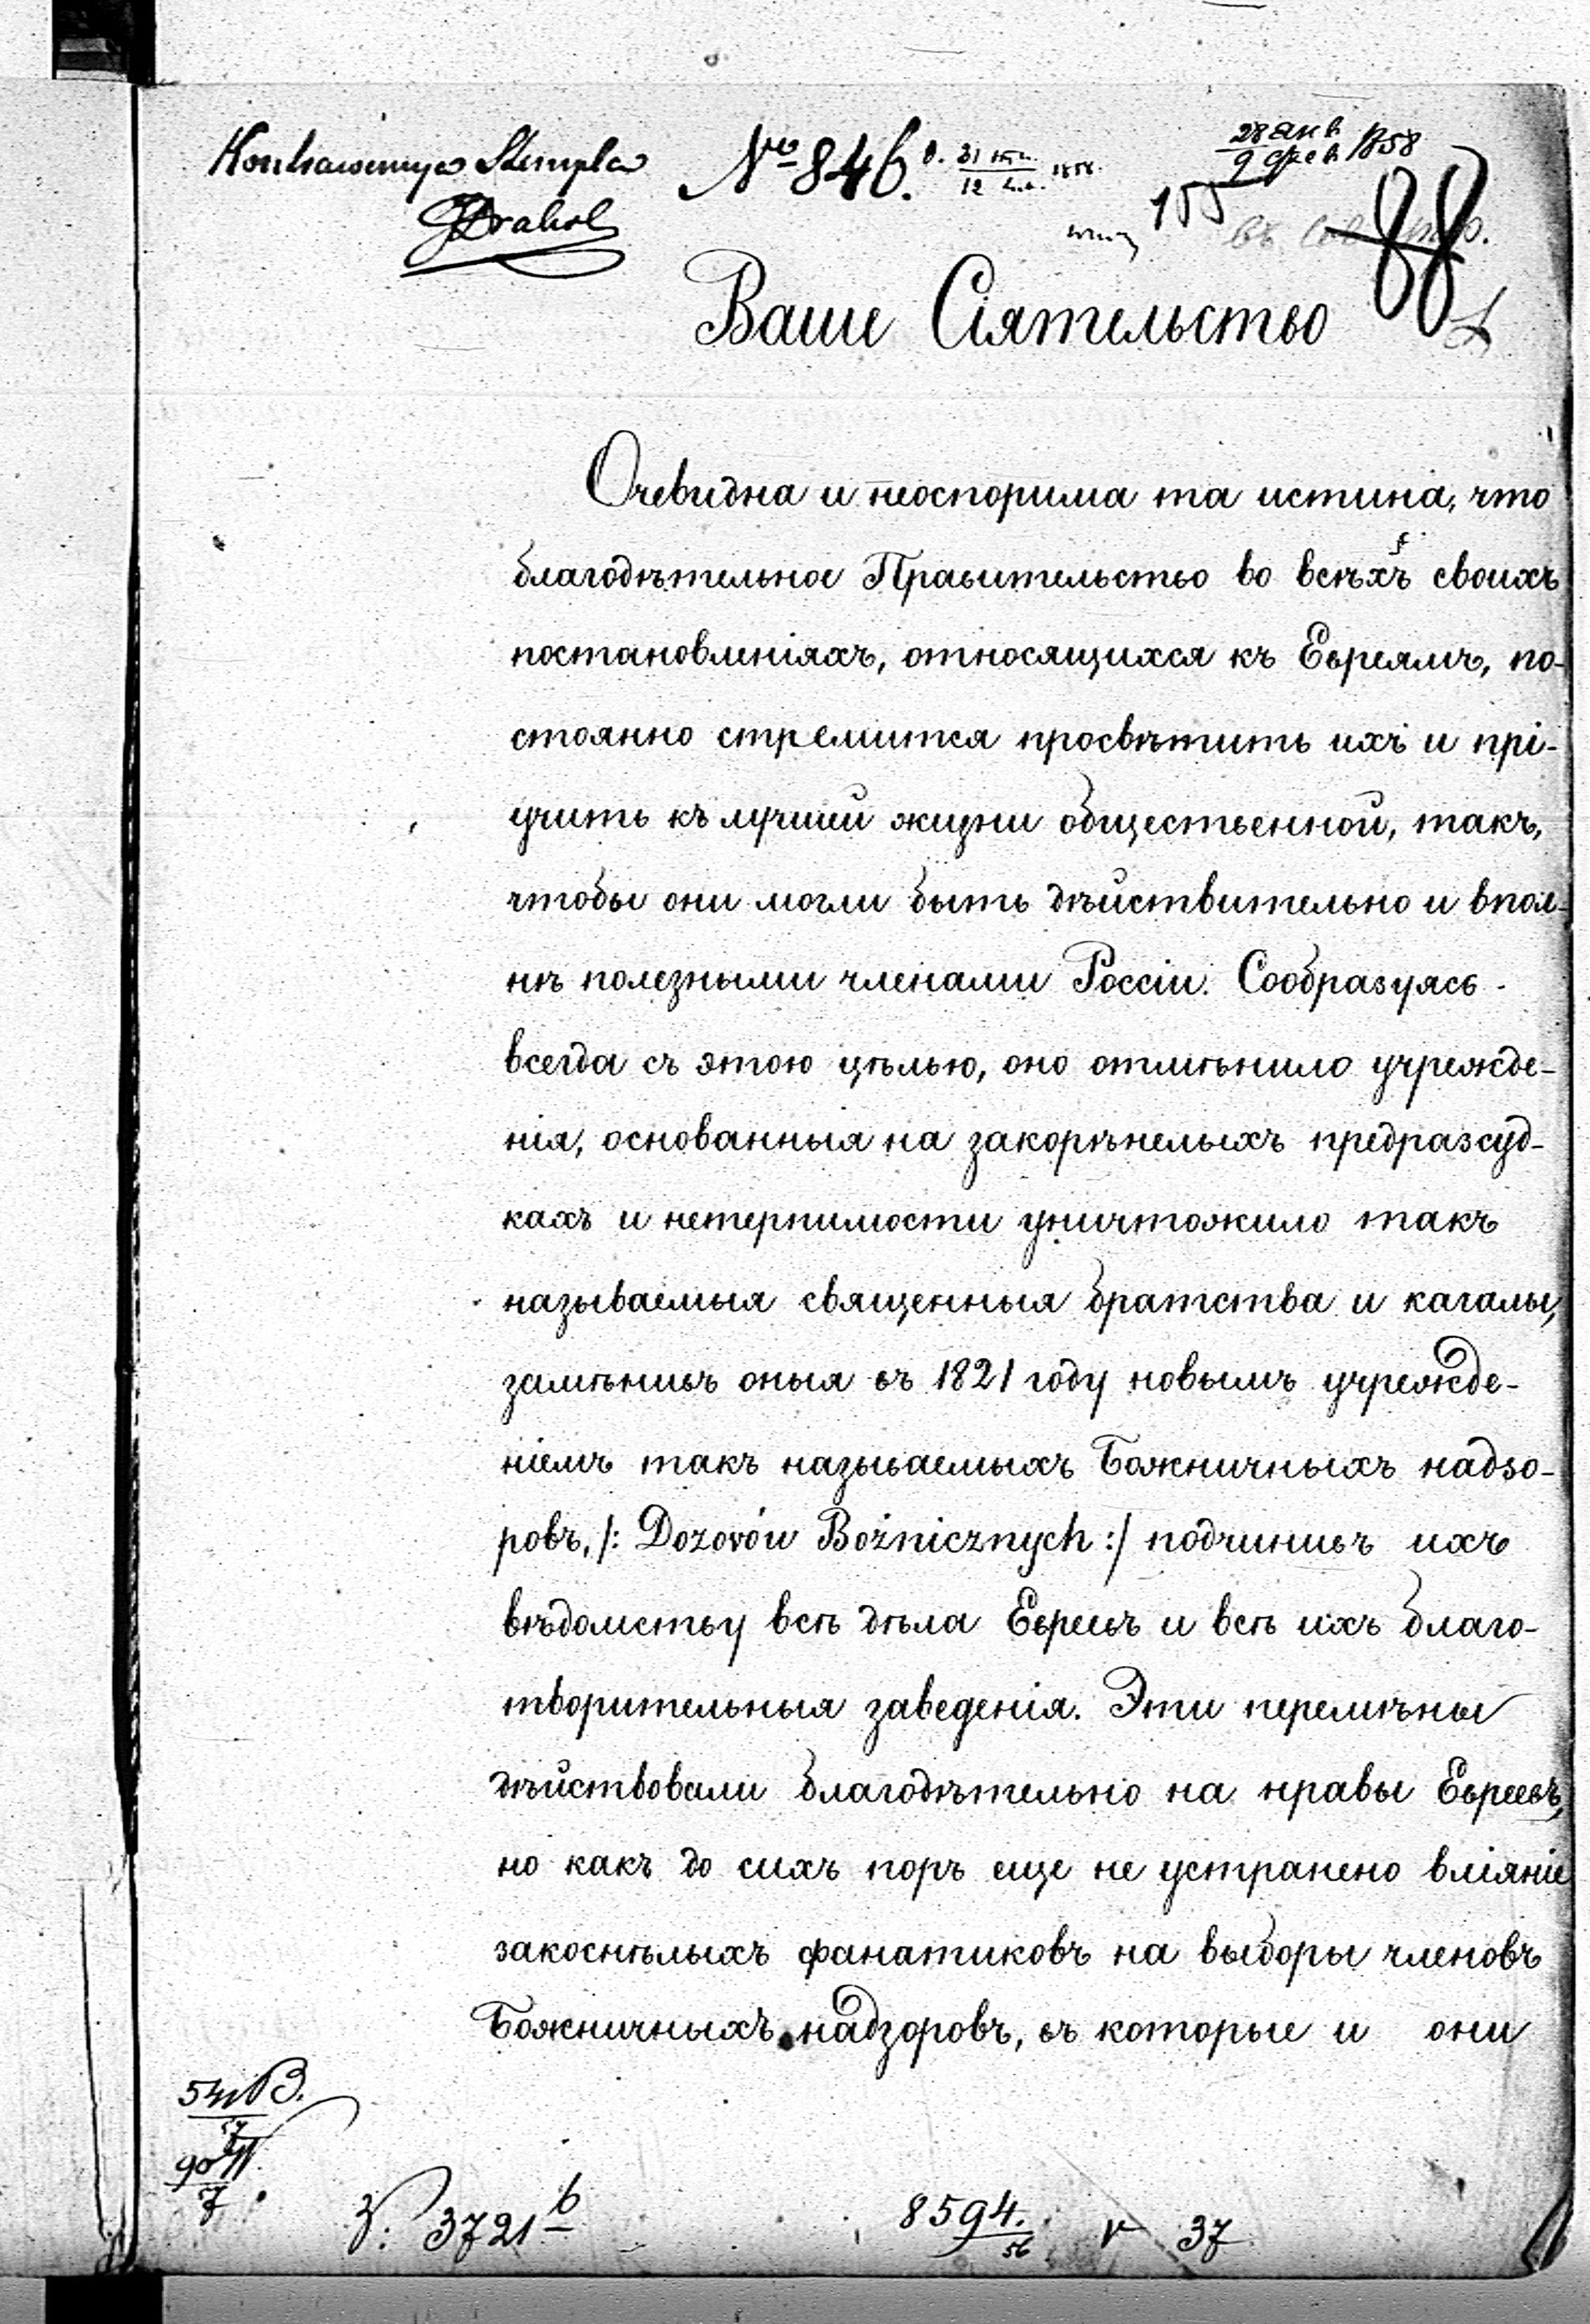 № 846.
28 янв. 1858
9 фев.
155
88
Ваше Сіятельство
Очевидна и неоспорима та истина, что
благодѣтельное Правительство во всѣхъ своихъ
постановленіяхъ, относящихся къ Евреямъ, по-
стоянно стремится просвѣтить ихъ и прі-
учить къ лучшей жизни общественной, такъ,
чтобы они могли быть дѣйствительно и впол-
нѣ полезными членами Россіи. Сообразуясь
всегда съ этою цѣлью, оно отмѣнило учрежде-
нія, основанныя на закорѣнелыхъ предразсуд-
кахъ и нетерпимости уничтожило такъ
называемыя священныя братства и кагалы,
замѣнивъ оныя въ 1821 году новымъ учрежде-
ніемъ такъ называемыхъ Божничныхъ надзо-
ровъ, /: Dozorów Bożnicznych :/ подчинивъ ихъ
вѣдомству всѣ дѣла Евреевъ и всѣ ихъ благо-
творительныя заведенія. Эти перемѣны
дѣйствовали благодѣтельно на нравы Евреевъ,
но какъ до сихъ поръ еще не устранено вліяніе
закоснѣлыхъ фанатиковъ на выборы членовъ
Божничныхъ надзоровъ, въ которые и они
3721 b
8594.
56
37